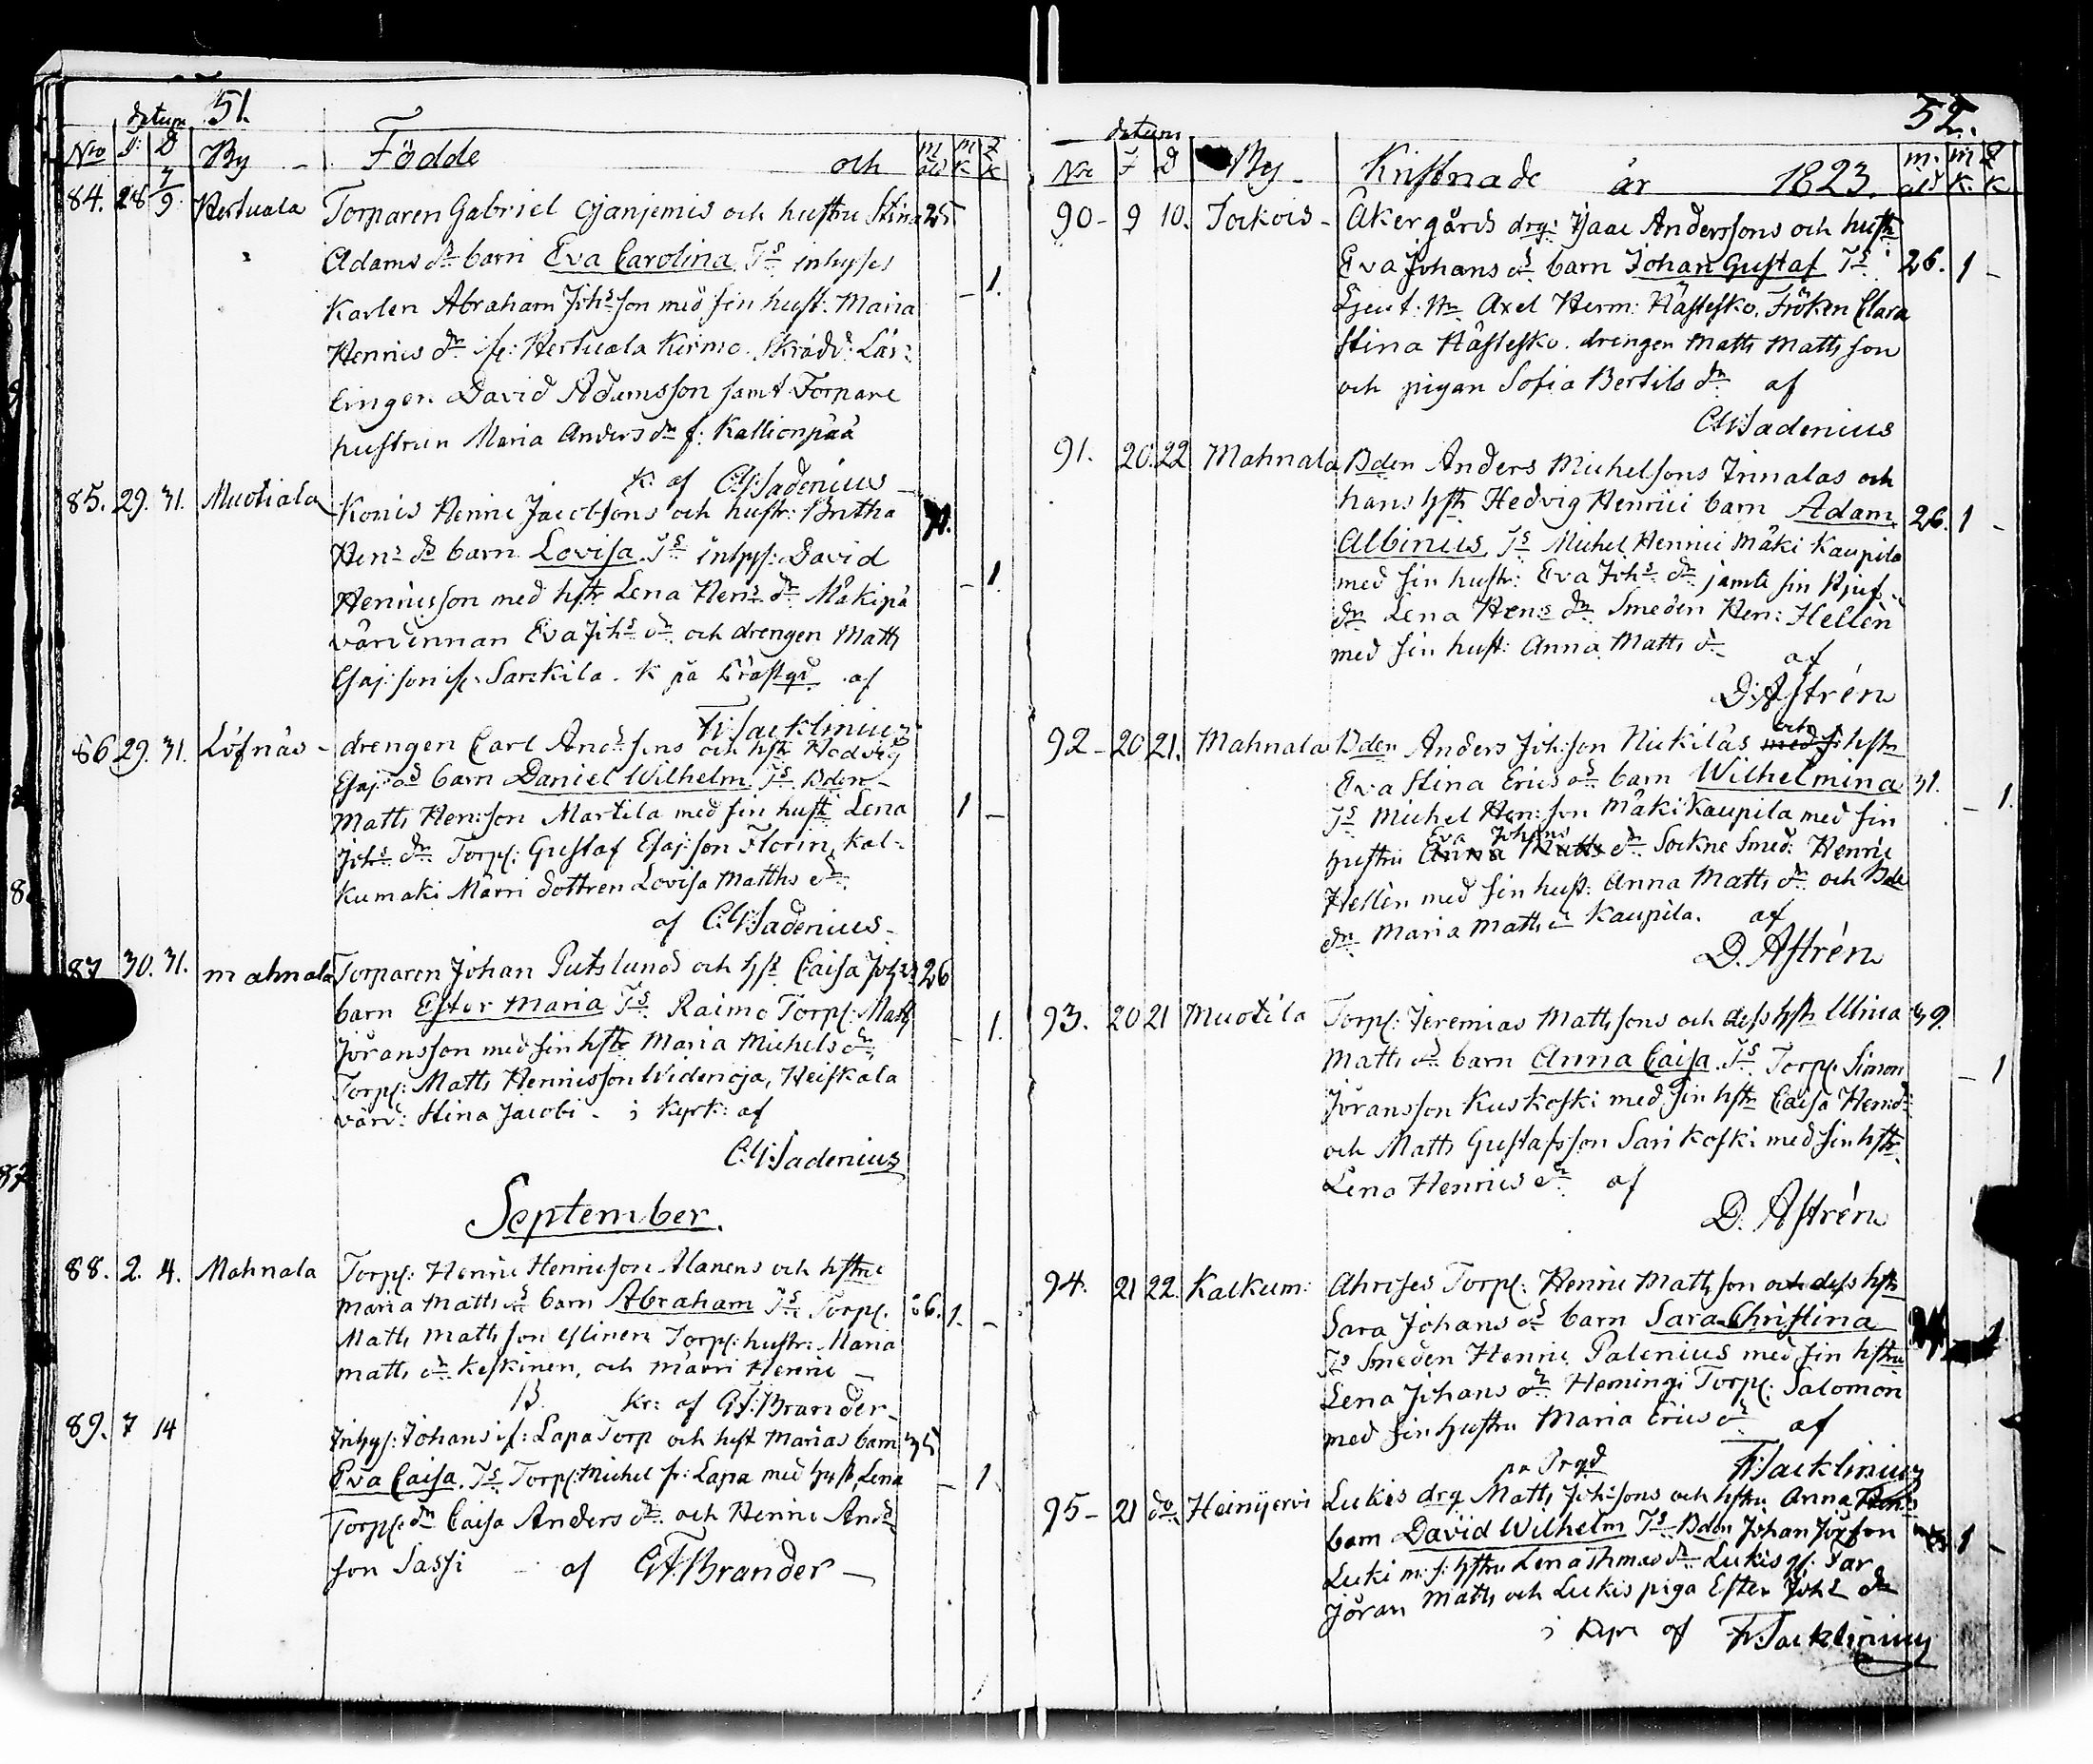 51.
datum
Nro F: D By Födde och m åld m K. Q K
84. 28 7/9 Hertuala Torparen Gabriel Ojanjemis och hustru Stina 25
Adams dr barn Eva Carolina Ts inhyses
Karlen Abraham Johsson med sin hust: Maria – 1.
Henrics dr Hertuala Skrädd: Lär:
lingen David Adamsson samt Torpare
hustrun Maria Anders dr f: Kallionpää
K. af C:G:Sadenius
85. 29. 31. Muotiala Konis Henric Jacobsons och hustr: Britha
Hens dr barn Lovisa Ts inhys: David – 1.
Henricsson med hstr Lena Hens dr Mäkipä
värdinnan Eva Johs dr och drengen Matts
Esaj:son Sarkila. K på Präst af
Fr:Jacklinius
86 29. 31. Löfnäs – drengen Carl Andssons och hstr Hedvig
Esaj ds barn Daniel Wilhelm Ts Bden
Matts Hen:son Martila med sin hust Lena 1 –
Johs dr Torp: Gustaf Esaj:son Florin, Kal-
kumaki Märri dottren Lovisa Matths dr
af C:G:Sadenius
87 30. 31. mahnala Torparen Johan Putslunds och hst Caisa Johs 26
barn Ester Maria Ts. Raimo Torp: Matts
Jöransson med sin hstr Maria Michels dr – 1.
Torp: Matts Henricsson Widenoja, Heiskala
värd: Stina Jacobi – i Kyrk: af
C:G:Sadenius
September.
88. 2. 4. Mahnala Torp: Henric Henricson Alanens och hstru
Maria Matts ds barn Abraham Ts Torp. 26. 1. –
Matts Mattsson Torp: hustr: Maria
Matts dr Keskinen, och Märri Henric
Kr: af G:F:Brander
89. 7 14 Inhys: Johans Lapa Torp och hust Marias barn 35
Eva Caisa. Ts Torp: Michel Lapa med hust Lena – 1
Torp: dr Caisa Anders dr och Henric Ands
son Sassi – af GF:Brander –
52.
datum
Nro F D By Kristnade år 1823 m. åld m K. Q K
90 – 9 10. Jokois – Åkergårds drg: Isaac Anderssons och hust
Eva Johans ds barn Johan Gustaf Ts 26. 1 –
Axel Herm: Hästesko. Fröken Clara
Stina Hästesko. drengen Matts Mattsson
och pigan Sofia Bertils dr af
C:G:Sadenius
91. 20. 22 Mahnala Bden Anders Michelsons Innalas och
hans hstr Hedvig Henrici barn Adam 26. 1 –
Albinus Ts Michel Henrici Mäki Kaupila
med sin hustr: Eva Johs dr jämte sin
dr Lena Hens dr Smeden Hen: Hellèn
med sin hust: Anna Matts dr af
D:Astrén
92 – 20 21. Mahnala Bden Anders Johsson Nickiläs och hstr
Eva Stina Erics ds barn Wilhelmina 31.
Ts Michel Hen:son Mäki Kaupila med sin – 1.
hustru Eva Johans dr Sockne Smed: Henric
Hellèn med sin hust: Anna Matts dr och Bde
dr Maria Matts dr Kaupila. af
D. Astrén
93. 20 21 Muotila Torp: Jeremias Mattssons och dess hstr Ulrica 39.
Matts ds barn Anna Caisa Ts Torp. Simon – 1
Jöransson Kuskoski med sin hstr Caisa Hen:dr
och Matts Gustafsson Sarikoski med sin hstr
Lena Henrics dr af
D. Astrén
94. 21 22. Kalkum: Torp: Henric Mattsson och dess hstr
Sara Johans ds barn Sara Christina 1
Ts Smeden Henric Palenius med sin hstru
Lena Johans dr Hemingi Torp: Salomon
med sin hustru Maria Erics dr af
på Prgd Fr:Jacklinius
95 – 21 do Heinijervi Lukis drg Matts Johssons och hstru Anna
barn David Wilhelm Ts Bden Johan 1 –
Luki m: s: hstru Lena Thomas dr Lukis
Jöran Matts och Lukis piga Ester Johs dr
i Kyrc af Fr:Jacklinius